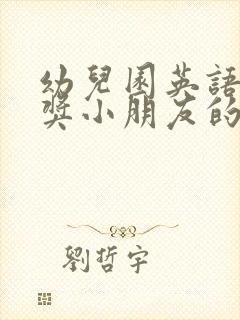 幼兒園英語
獎小朋友的
劉哲宇